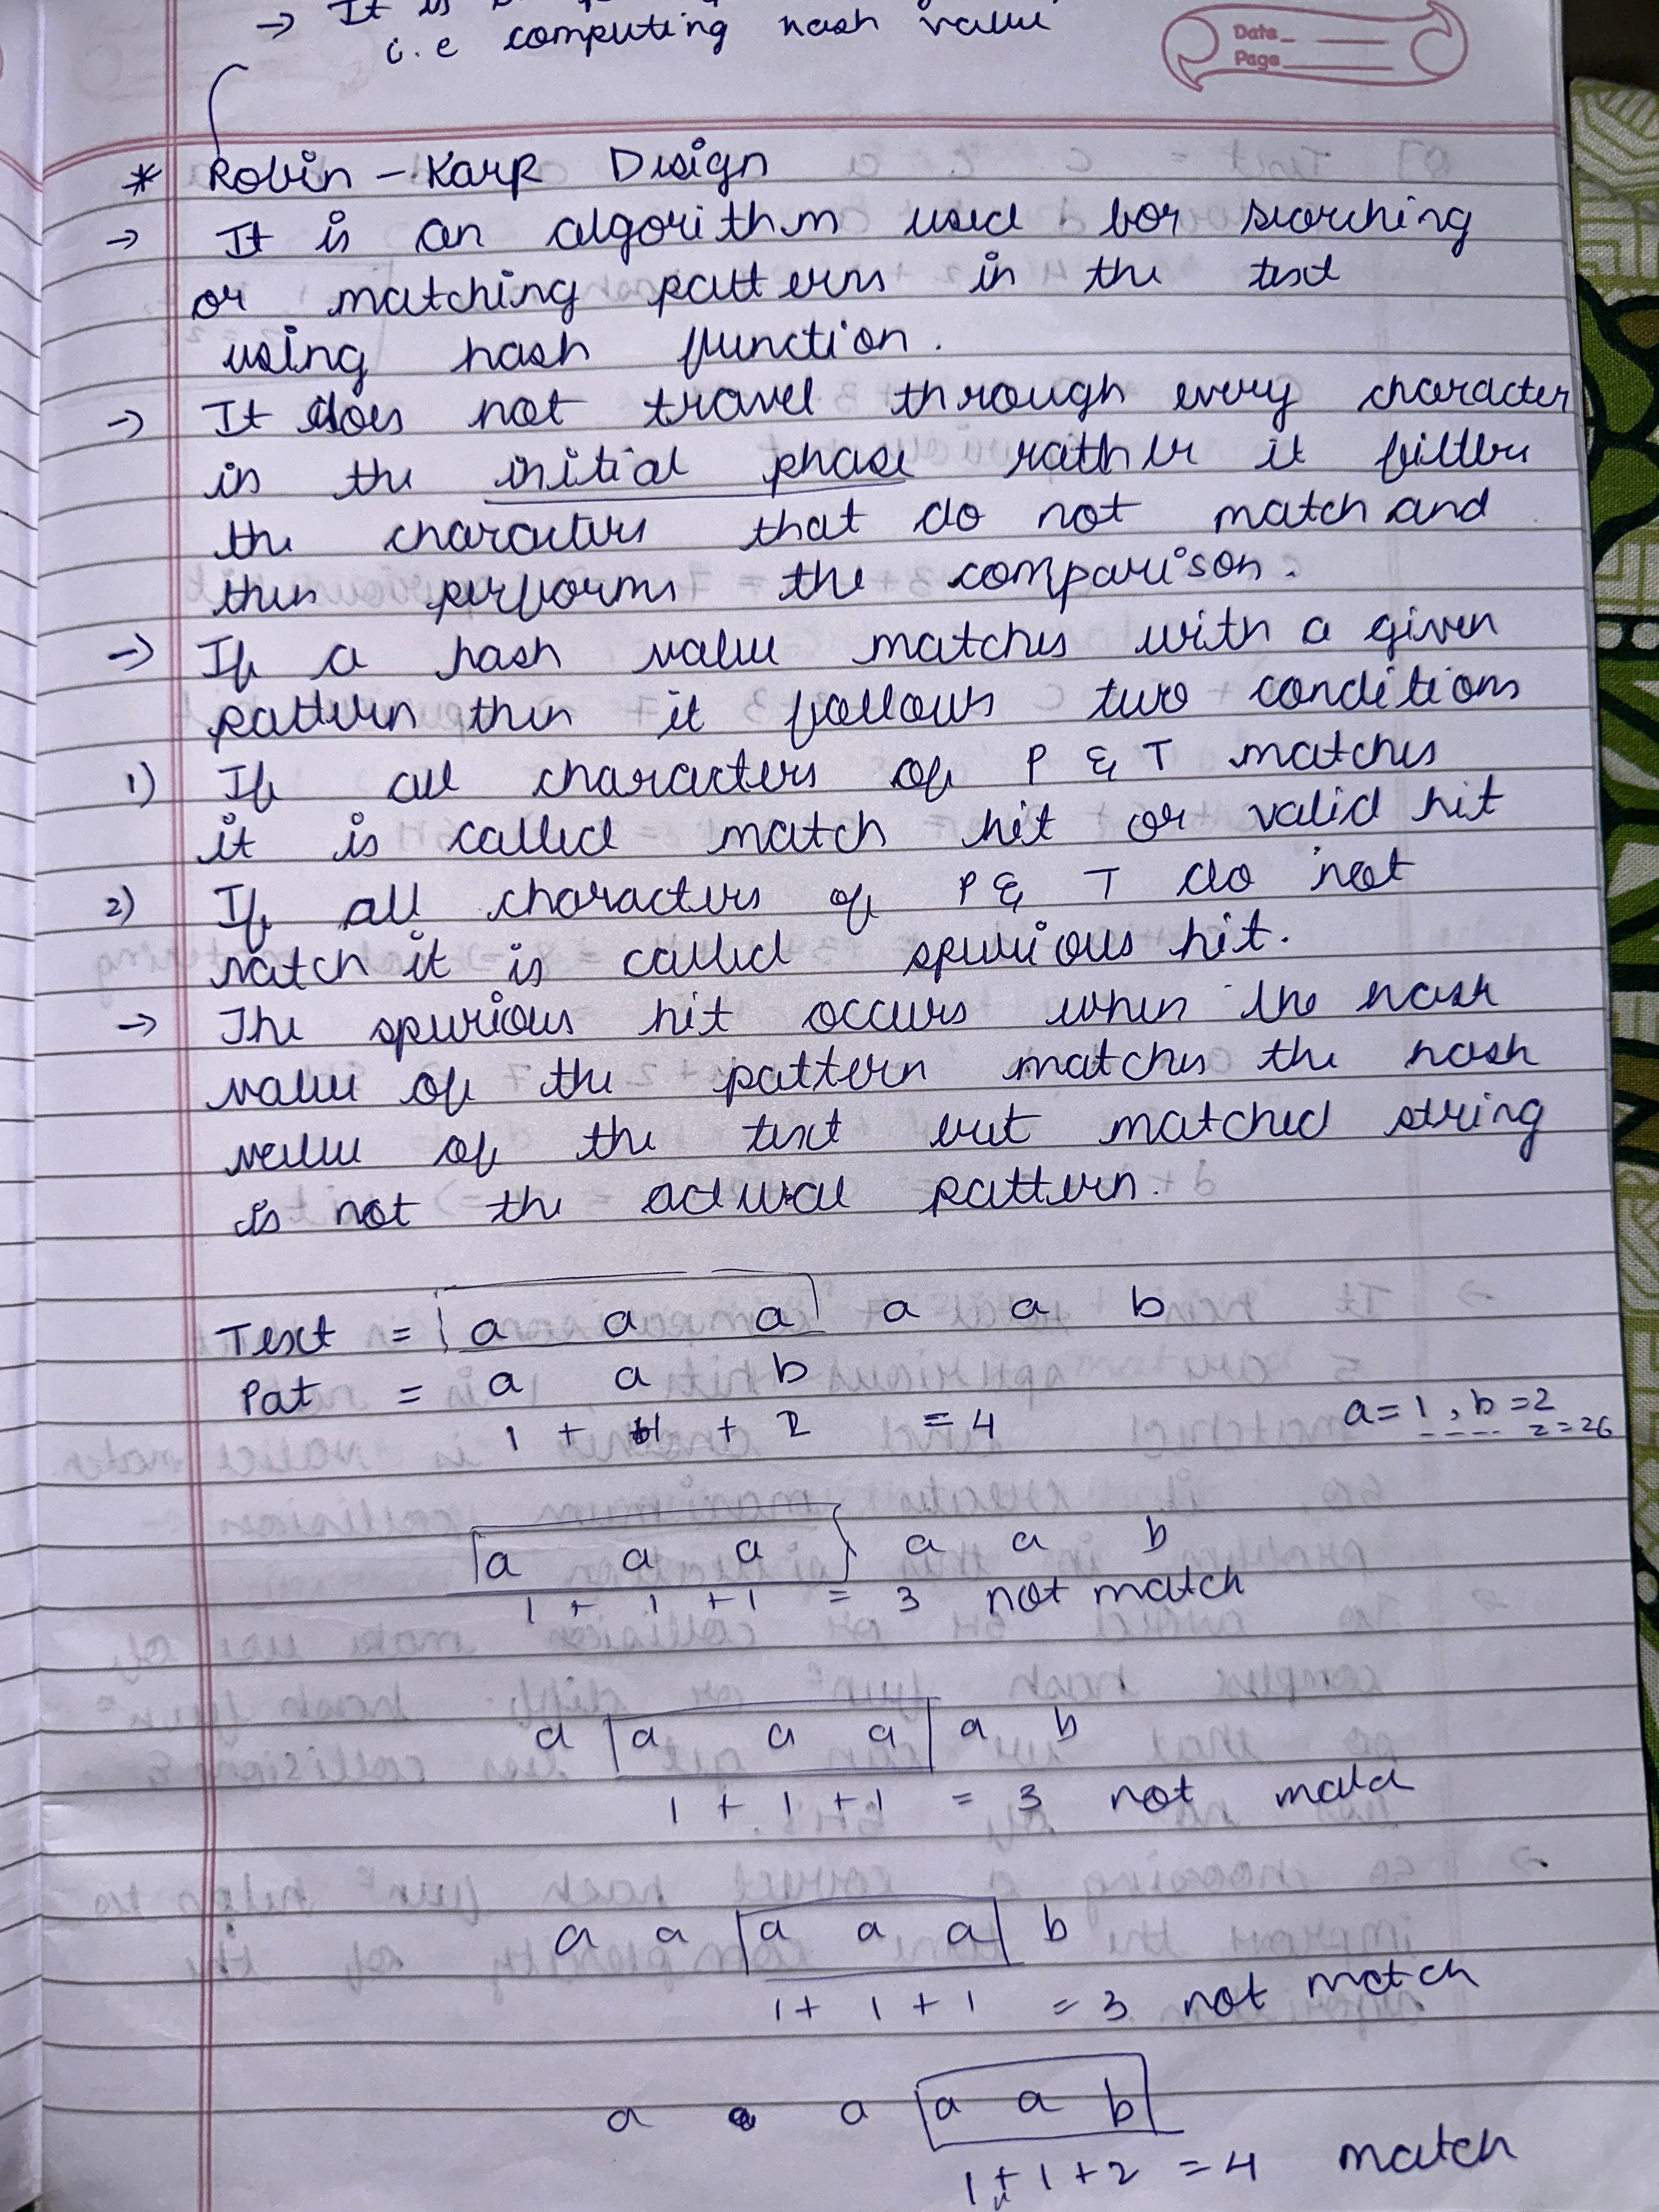 → It is
i.e computing hash value
Date
Page
* Robin - Karp Design
→ It is an algorithm used for searching
or matching patterns in the text
using hash function.
→ It does not travel through every character
in the initial phase rather it filters
the characters that do not match and
then performs the comparison.
→ If a hash value matches with a given
pattern then it follows two conditions
1) If all characters of P & T matches
it is called match hit or valid hit
2) If all characters of P & T do not
match it is called spurious hit.
→ The spurious hit occurs when the hash
value of the pattern matches the hash
value of the text but matched string
is not the actual pattern.
Text = a a a a a b
Pat = a a b
1 + 1 + 2 = 4
a=1, b=2
---- z=26
a a a a a b
1 + 1 + 1 = 3 not match
a a a a a b
1 + 1 + 1 = 3 not match
a a a a a b
1 + 1 + 1 = 3 not match
a a a a a b
1 + 1 + 2 = 4 match